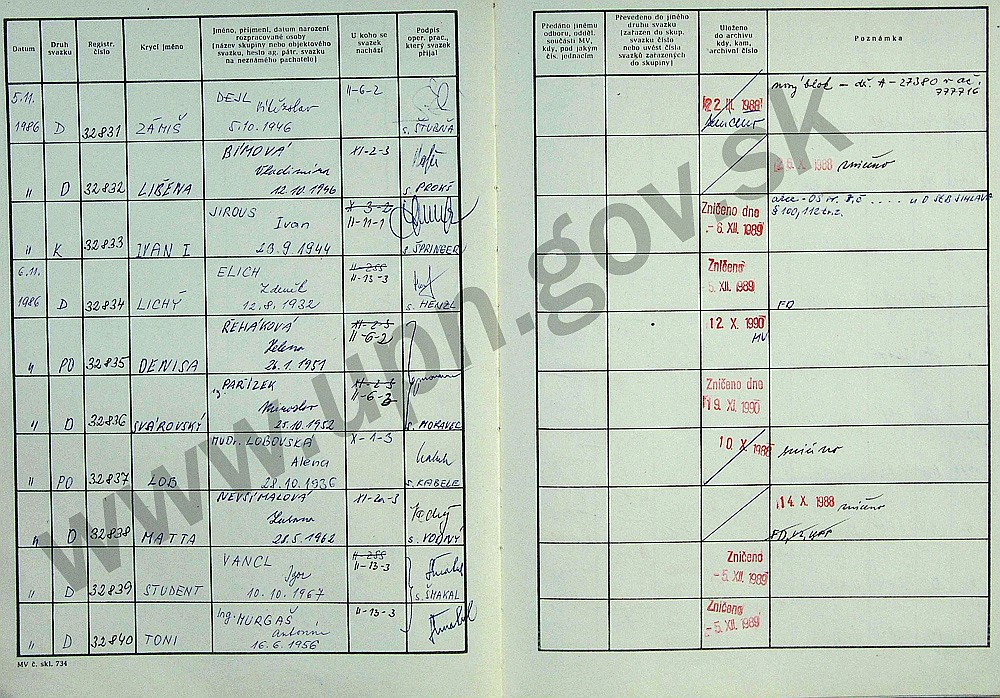 Datum
Druh svazku
Registr. číslo
Krycí jméno
Jméno, příjmení, datum narození
rozpracované osoby
(název skupiny nebo objektového
svazku, heslo ag. pátr. svazku
na neznámého pachatele)
U koho se
svazek
nachází
Podpis
oper. prac.,
který svazek
přijal
Předáno jinému
odboru, odděl.
součásti MV,
kdy, pod jakým
čís. jednacím
Převedeno do jiného
druhu svazku
(zařazen do skup.
svazku číslo
nebo uvést číslo
svazků zařazených
do skupiny)
Uloženo
do archivu
kdy, kam,
archivní číslo
Poznámka
5.11.
1986 D 32831 ZÁMIŠ
DEJL
Vítězslav
5.10.1946
II-6-2
s. ŠTURNA
22 III. 1988
nový blok - dř. A-27380 v ač.
777716
" D 32832 LIBĚNA
BÍMOVÁ
Vladimíra
12.10.1946
XI-2-3
s. PROKŠ
26 X. 1988 zničeno
" K 32833 IVAN I
JIROUS
Ivan
23.9.1944
X-3-2
II-11-1
s. ŠPRINGER
Zničeno dne
- 6. XII. 1989
§100,112 tr.z.
6.11.
1986 D 32834 LICHÝ
ELICH
Zdeněk
12.8.1932
II-255
II-13-3
s. HENZL
Zničeno
5. XII. 1989
FO
" PO 32835 DENISA
ŘEHÁKOVÁ
Helena
26.1.1951
XI-2-3
II-6-2
12. X. 1990
MV
" D 32836 SVÁROVSKÝ
Ing. PAŘÍZEK
Miroslav
25.10.1952
XI-2-3
II-6-3
s. MORAVEL
Zničeno dne
19. XI. 1990
" PO 32837 LOB
MUDr. LOBOVSKÁ
Alena
28.10.1936
X-1-3
s. KABELE
10. X. 1988 zničeno
" D 32838 MATTA
NEVŠÍMALOVÁ
Zuzana
28.5.1962
XI-2a-3
s. VODNÝ
14. X. 1988 zničeno
" D 32839 STUDENT
VANCL
Igor
10.10.1967
II-255
II-13-3
s. ŠMAKAL
Zničeno
- 5. XII. 1989
" D 32840 TONI
Ing. MURGAŠ
Antonín
16.6.1956
II-13-3
Zničeno
- 5. XII. 1989
MV č. skl. 734
www.upn.gov.sk